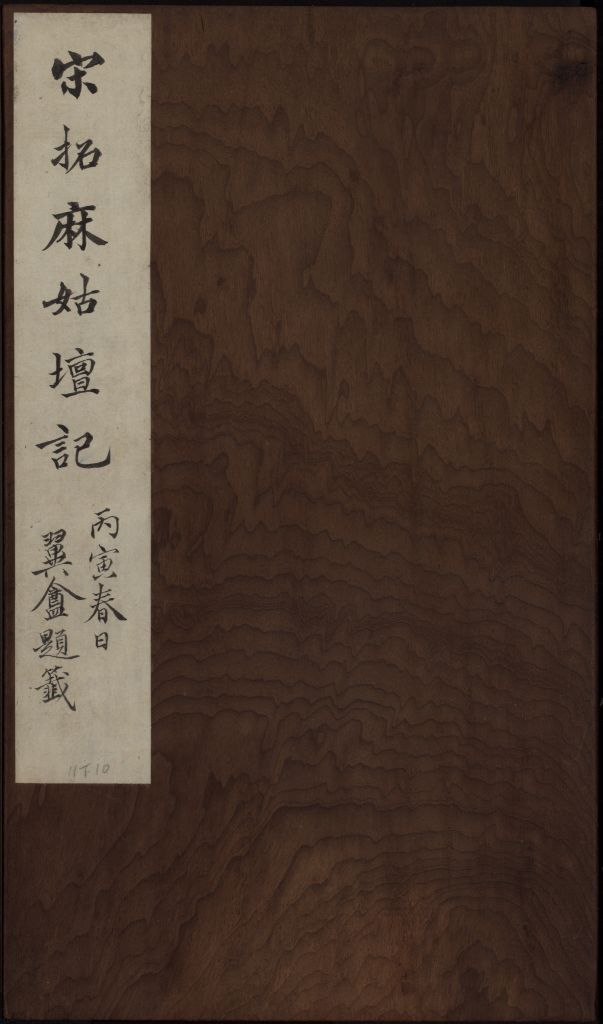 宋拓麻姑壇記
丙寅春日
翼盦題籤
11T10